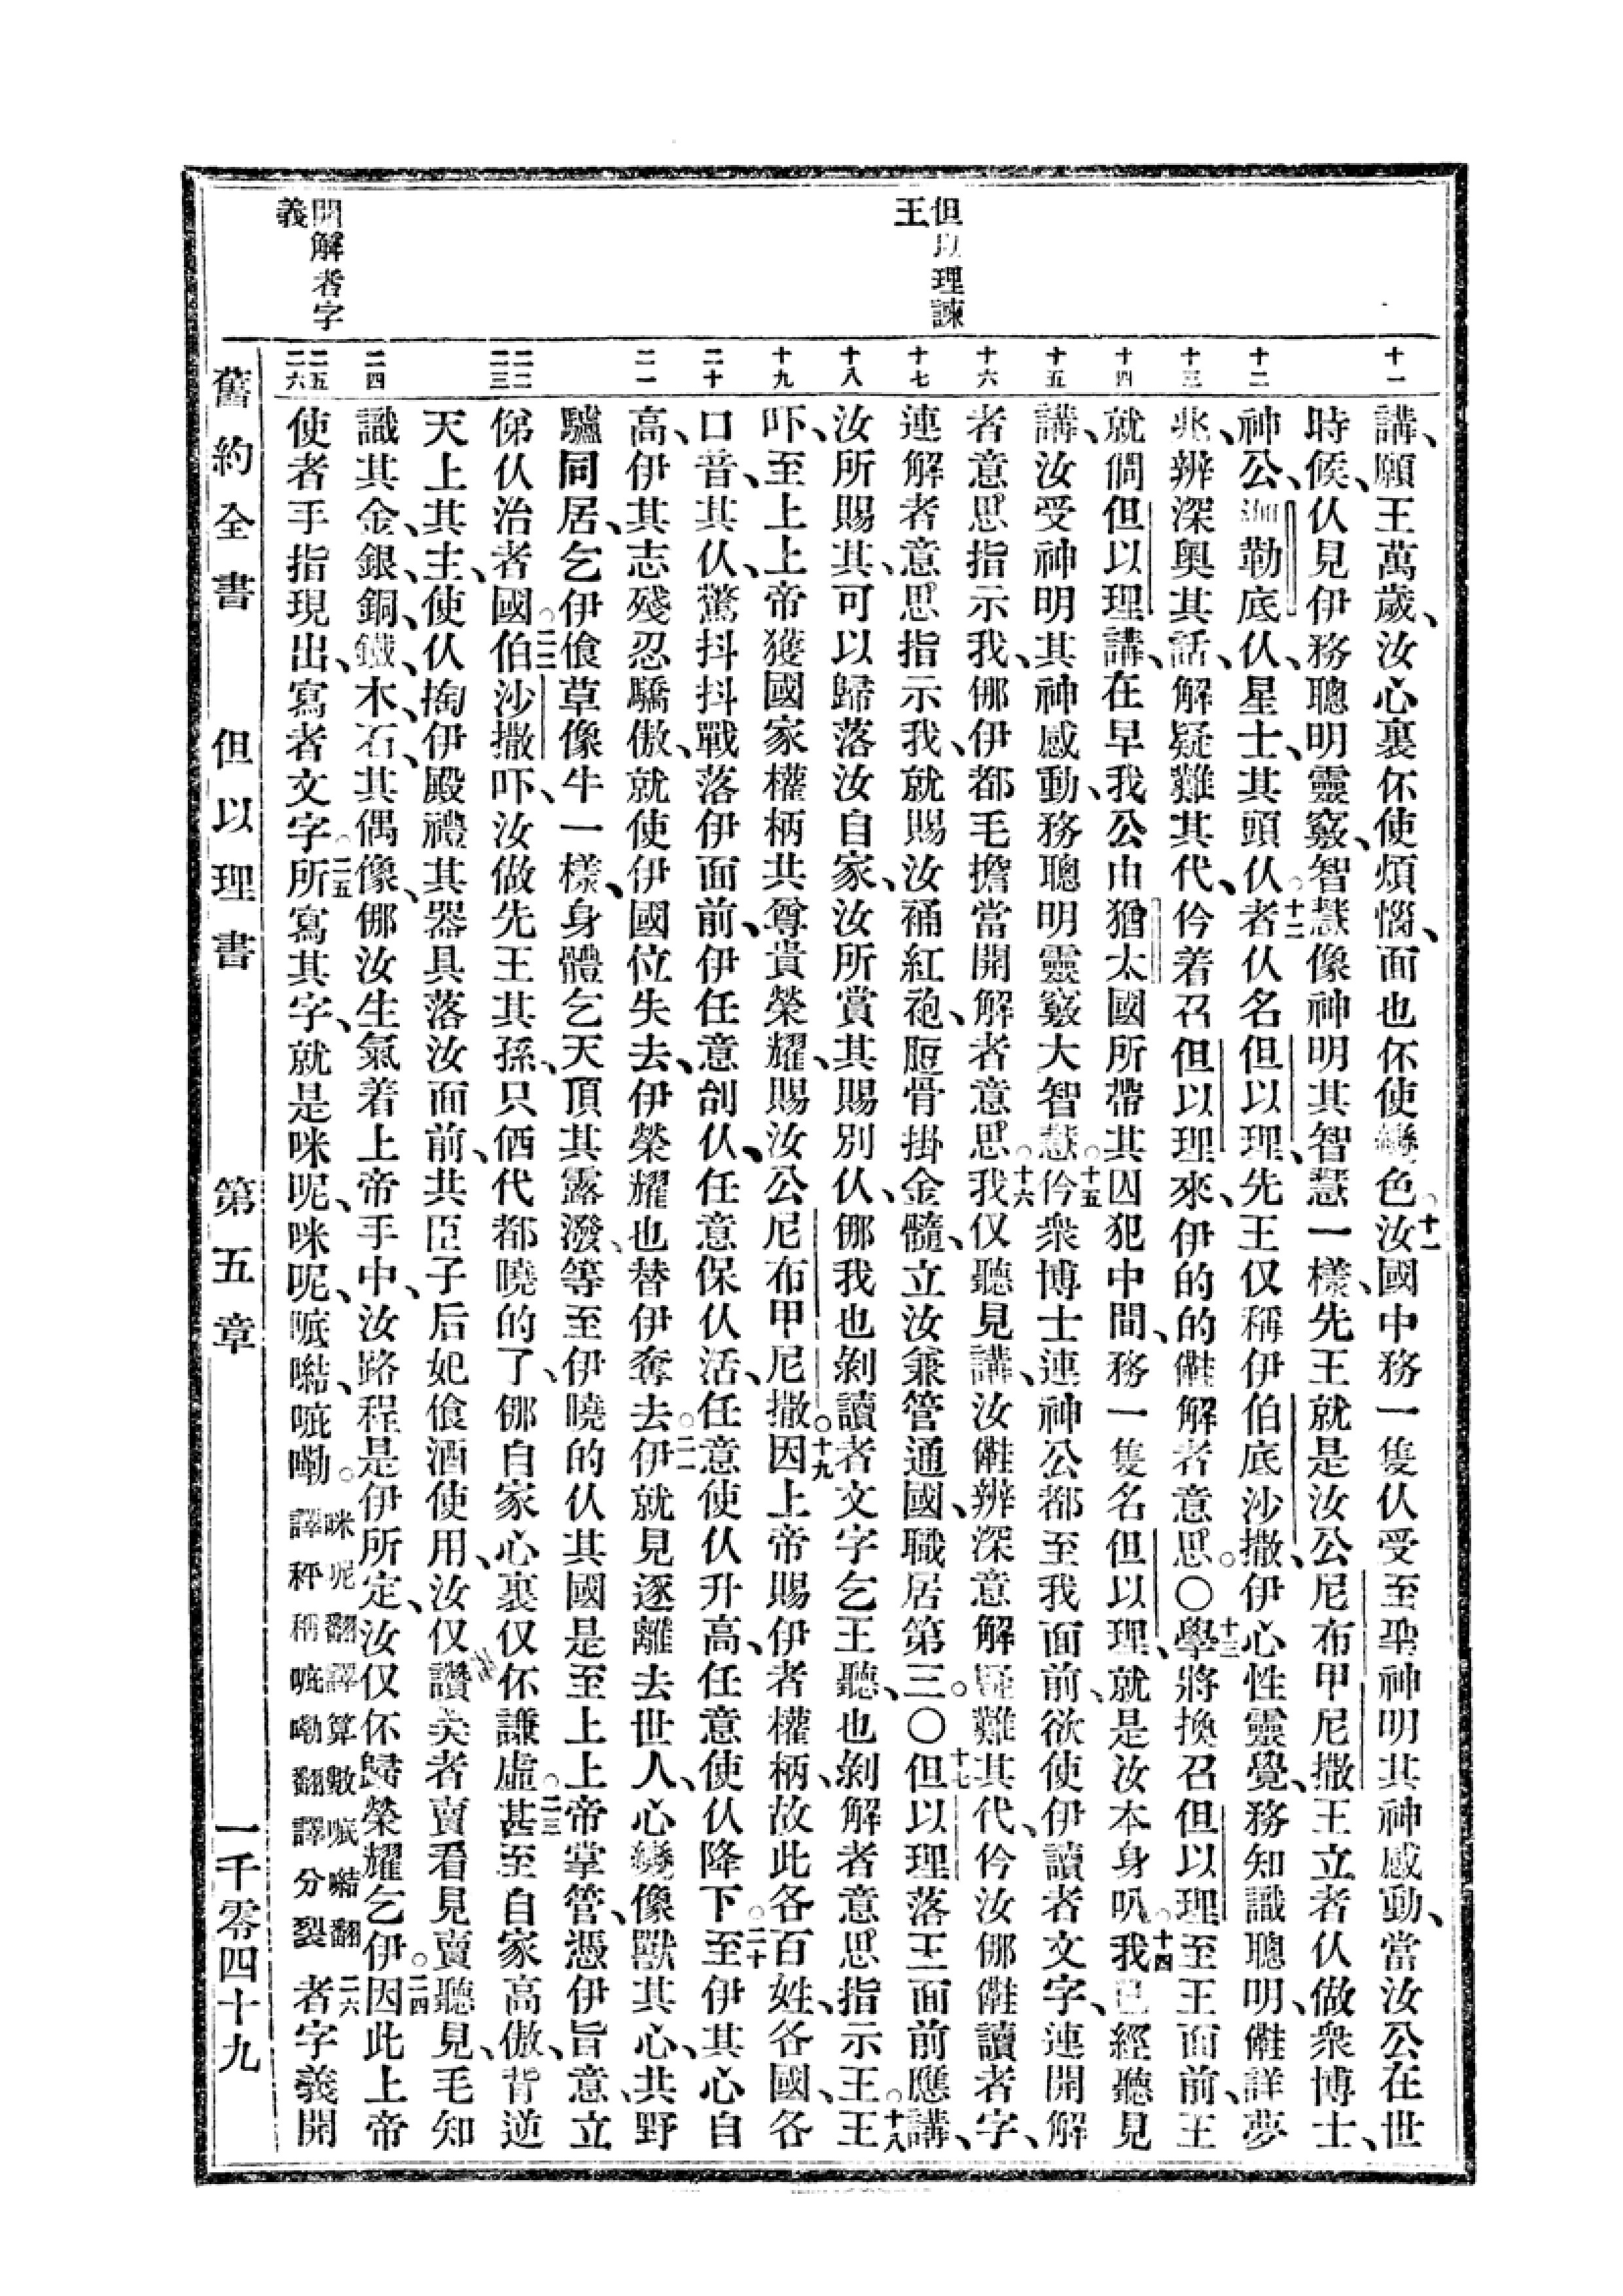 但以理諫
王
開解者字
義
十一
講、願王萬歲、汝心裏伓使煩惱、面也伓使變色。十一汝國中務一隻仈受至聖神明其神感動、當汝公在世
時候、仈見伊務聰明靈竅、智慧像神明其智慧一樣、先王就是汝公尼布甲尼撒王立者仈做衆博士、
十二
神公、迦勒底仈、星士、其頭仈。十二者仈名但以理、先王仅稱伊伯底沙撒、伊心性靈覺、務知識聰明、㒕詳夢
十三
兆、辨深奧其話、解疑難其代、仱着召但以理來、伊的的㒕解者意思。〇十三學將換召但以理至王面前、王
十四
就倜但以理講、在早我公由猶太國所帶其囚犯中間、務一隻名但以理、就是汝本身叭。十四我已經聽見
十五
講、汝受神明其神感動、務聰明靈竅大智慧。十五仱衆博士連神公都至我面前、欲使伊讀者文字、連開解
十六
者意思指示我、㑚伊都毛擔當開解者意思。十六我仅聽見講、汝㒕辨深意解疑難其代、仱汝㑚㒕讀者字、
十七
連解者意思指示我、就賜汝䘄紅袍、脰骨掛金髓、立汝兼管通國、職居第三。〇十七但以理落王面前應講、
十八
汝所賜其、可以歸落汝自家、汝所賞其賜別仈、㑚我也剝讀者文字乞王聽、也剝解者意思指示王。十八王
十九
吓、至上上帝獲國家權柄共尊貴榮耀、賜汝公尼布甲尼撒。十九因上帝賜伊者權柄、故此各百姓、各國、各
二十
口音其仈、驚抖抖戰落伊面前、伊任意刣仈、任意保仈活、任意使仈升高、任意使仈降下。二十至伊其心自
二一
高、伊其志殘忍驕傲、就使伊國位失去、伊榮耀也替伊奪去。二一伊就見逐離去世人、心變像獸其心、共野
驢同居、乞伊飡草像牛一樣、身體乞天頂其露潑、等至伊曉的仈其國是至上上帝掌管、憑伊旨意、立
二二
二三
俤仈治者國。二二伯沙撒吓、汝做先王其孫、只㑚代都曉的了、㑚自家心裏仅伓謙虛。二三甚至自家高傲、背逆
天上其主、使仈掏伊殿禮其器具落汝面前、共臣子后妃飡酒使用、汝仅讚美者賣看見賣聽見、毛知
二四
識其金、銀、銅、鐵、木、石、其偶像、㑚汝生氣着上帝手中、汝路程是伊所定、汝仅伓歸榮耀乞伊。二四因此上帝
二五
二六
使者手指現出、寫者文字。二五所寫其字、就是咪呢、咪呢、㖮㘉、𠯗嘞。咪呢翻譯算數㖮㘉翻譯秤稱𠯗嘞翻譯分裂二六者字義開
舊約全書　但以理書　第五章　一千零四十九